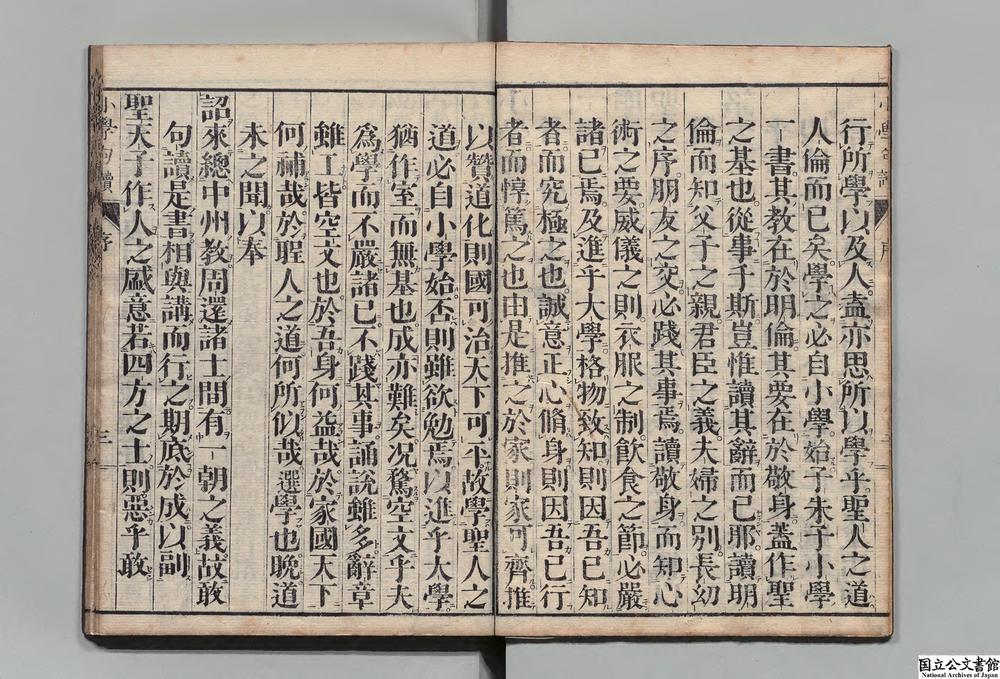 行所學以及人盖亦思所以學乎聖人之道
人倫而已矣學之必自小學始子朱子小學
一書其教在於明倫其要在於敬身蓋作聖
之基也從事于斯豈惟讀其辭而已耶讀明
倫而知父子之親君臣之義夫婦之別長幼
之序朋友之交必踐其事焉讀敬身而知心
術之要威儀之則衣服之制飲食之節必嚴
諸已焉及進乎大學格物致知則因吾已知
者而究極之也誠意正心脩身則因吾已行
者而惇篤之也由是推之於家則家可齊推
以贊道化則國可治天下可平故學聖人之
道必自小學始否則雖欲勉焉以進乎大學
猶作室而無基也成亦難矣况騖空文乎夫
爲學而不嚴諸已不踐其事誦說雖多辭章
雖工皆空文也於吾身何益哉於家國天下
何補哉於聖人之道何所似哉選學也晚道
未之聞以奉
詔來總中州教周還諸士間有一朝之義故敢
句讀是書相與講而行之期底於成以副
聖天子作人之盛意若四方之士則惡乎敢
小學句讀
序
三